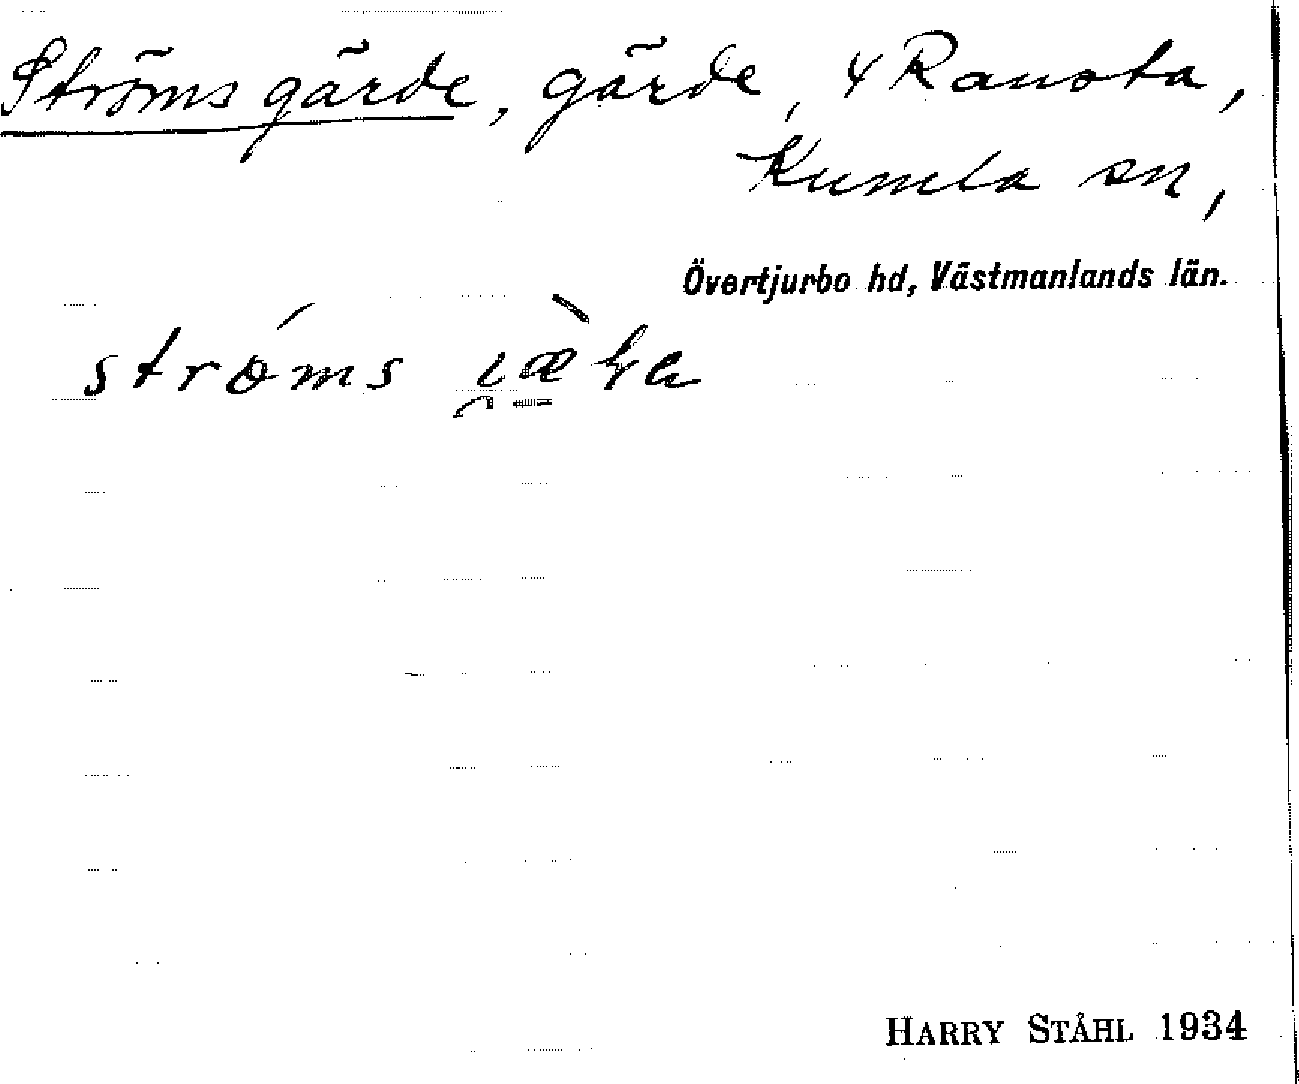 Strömsgärde, gärde, 4 Ransta,
Kumla sn,
Övertjurbo hd, Västmanlands län.
ströms
HARRY STÅHL 1934